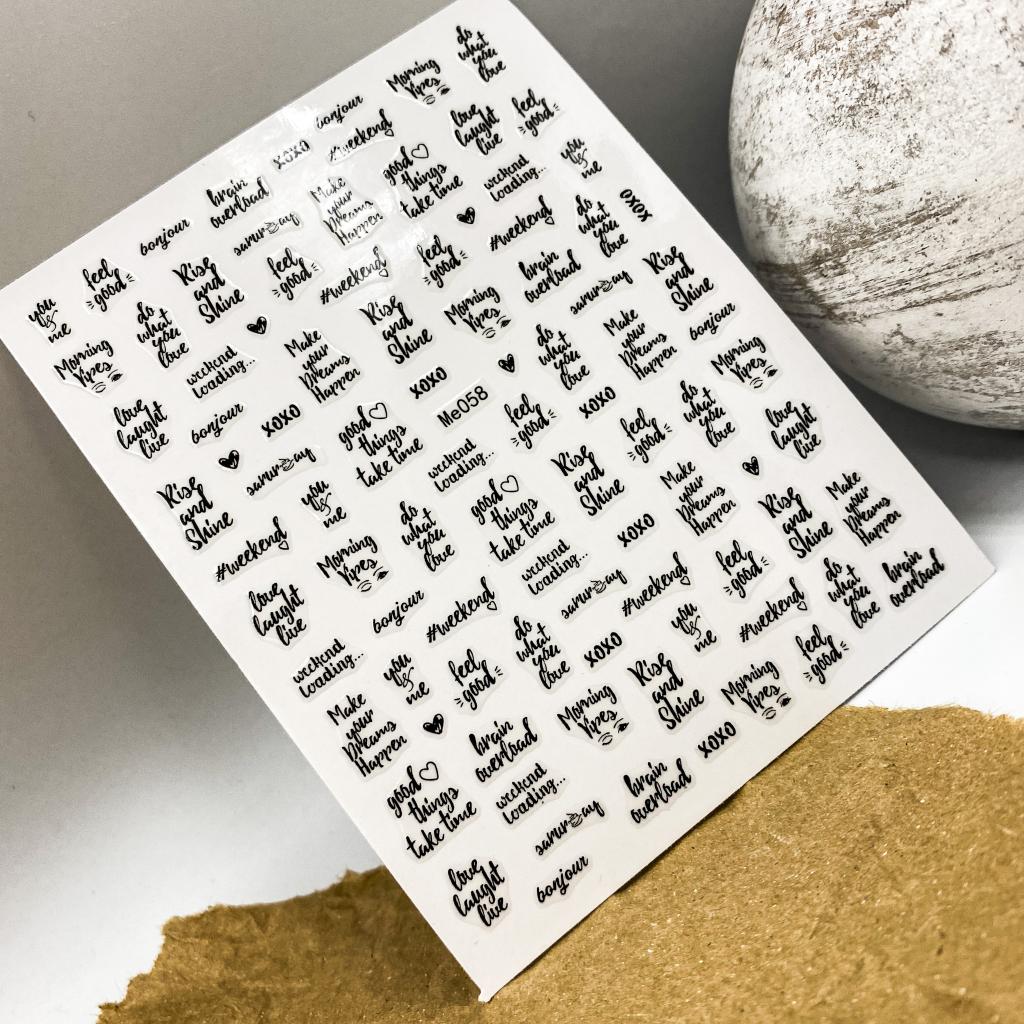 you
&
me
feel
good
bonjour
brain
overload
xoxo
bonjour
Morning
Vipes
do
what
you
love
Morning
Vipes
do
what
you
love
Rise
and
Shine
saturday
Make
your
Dreams
Happen
#weekend
love
laught
live
feel
good
love
laught
live
weekend
loading...
feel
good
#weekend
good
things
take time
weekend
loading...
you
&
me
bonjour
xoxo
Make
your
Dreams
Happen
Rise
and
Shine
feel
good
#weekend
do
what
you
love
xoxo
Rise
and
Shine
saturday
good
things
take time
xoxo
Morning
Vipes
brain
overload
saturday
Rise
and
Shine
#weekend
you
&
me
Me058
do
what
you
love
Make
your
Dreams
Happen
bonjour
love
laught
live
Morning
Vipes
do
what
you
love
weekend
loading...
feel
good
xoxo
Morning
Vipes
weekend
loading...
bonjour
good
things
take time
Rise
and
Shine
feel
good
do
what
you
love
love
laught
live
Make
your
Dreams
Happen
you
&
me
#weekend
weekend
loading...
xoxo
Make
your
Dreams
Happen
good
things
take time
feel
good
do
what
you
love
saturday
#weekend
feel
good
Rise
and
Shine
Make
your
Dreams
Happen
brain
overload
weekend
loading...
Morning
Vipes
xoxo
you
&
me
#weekend
do
what
you
love
brain
overload
love
laught
live
saturday
Rise
and
Shine
Morning
Vipes
feel
good
bonjour
brain
overload
xoxo